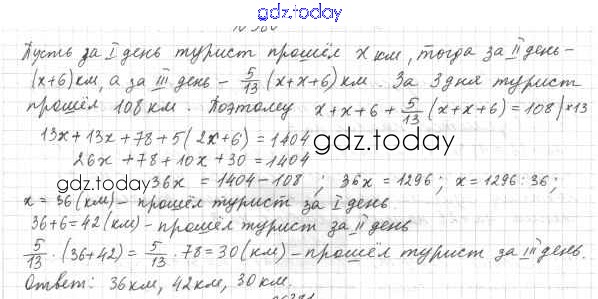 gdz.today
Пусть за I день турист прошёл x км, тогда за II день –
(x+6) км, а за III день – 5/13 (x+x+6) км. За 3 дня турист
прошёл 108 км. Поэтому x+x+6+5/13(x+x+6)=108 |×13
13x+13x+78+5(2x+6)=1404
gdz.today
26x+78+10x+30=1404
gdz.today
36x=1404-108; 36x=1296; x=1296:36;
x=36(км) – прошёл турист за I день
36+6=42(км) – прошёл турист за II день
5/13·(36+42)=5/13·78=30(км) – прошёл турист за III день.
Ответ: 36км, 42км, 30км.
gdz.today